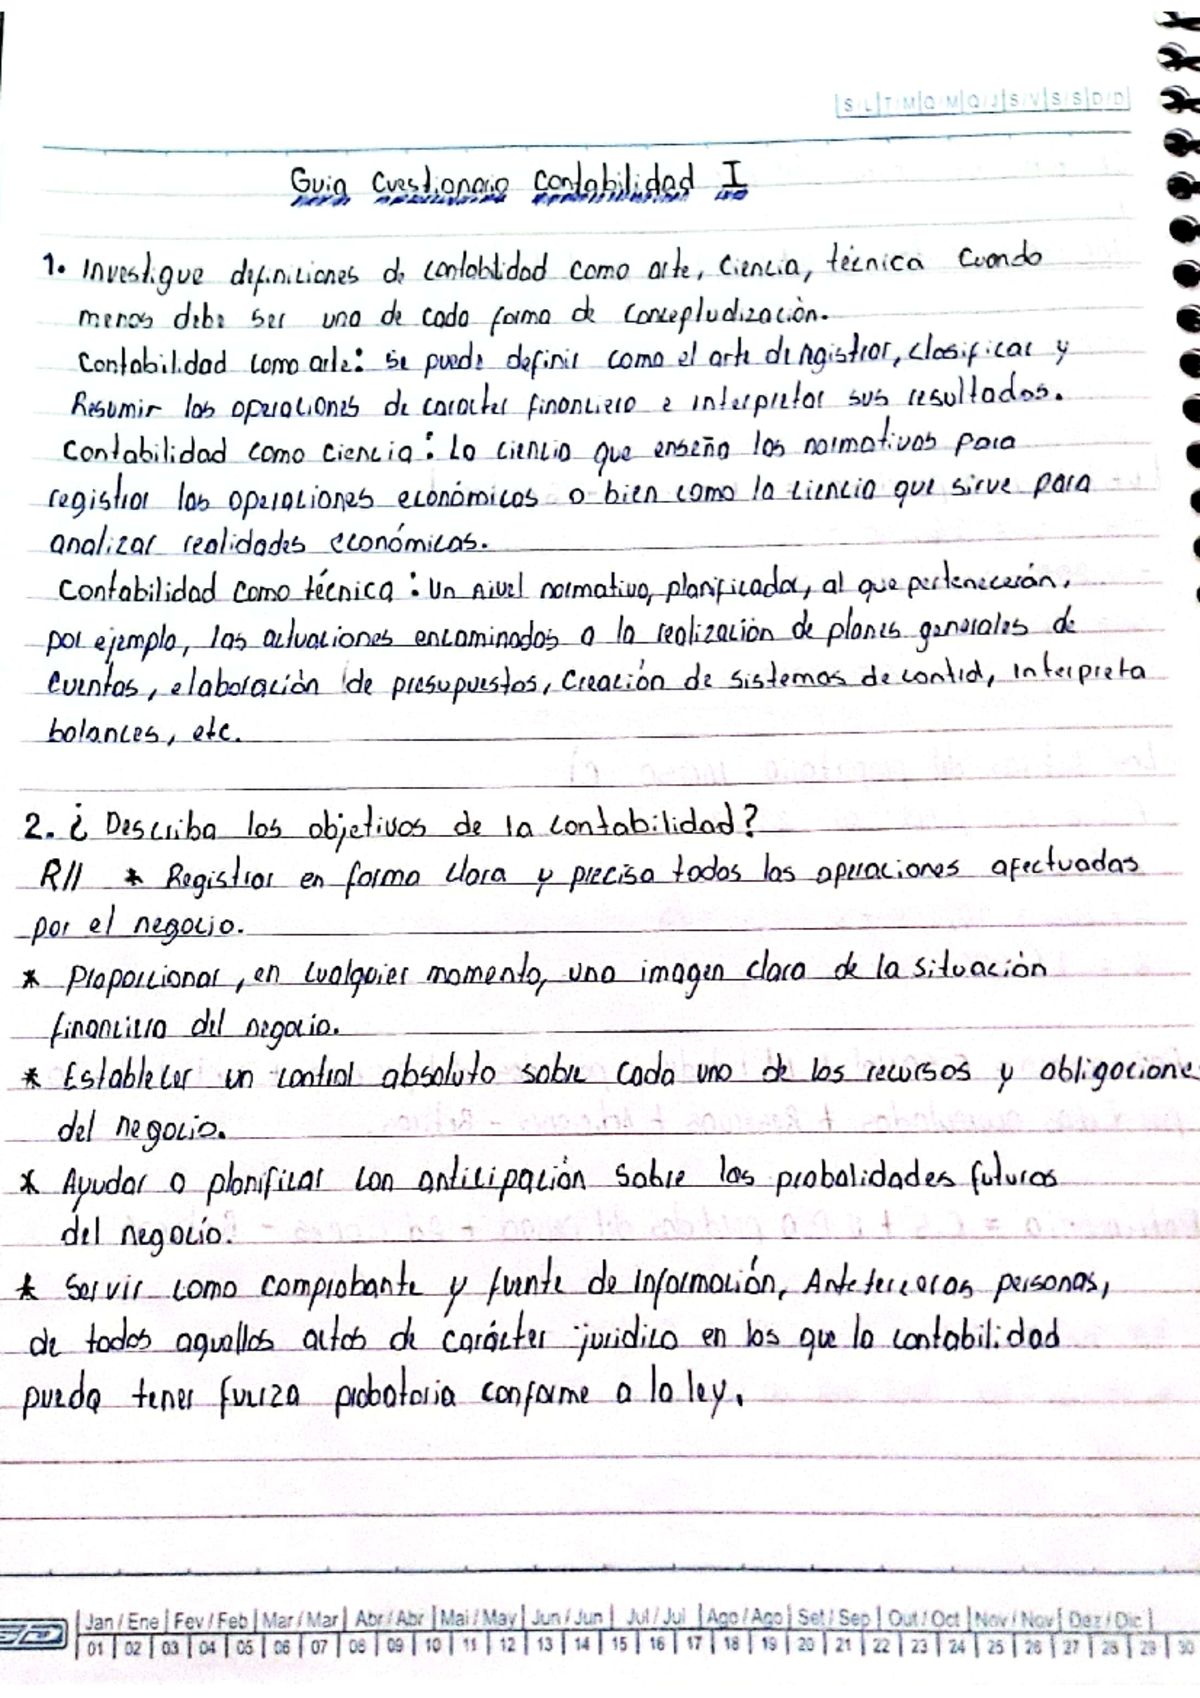 S/L|T/M|Q/M|Q/J|S/V|S/S|D/D
Guia Cuestionario Contabilidad I
1. Investigue definiciones de contabilidad como arte, Ciencia, técnica Cuando
menos debe ser una de cada forma de Conceptudización.
Contabilidad como arte: Se puede definir como el arte de registrar, clasificar y
Resumir las operaciones de caracter financiero e interpretar sus resultados.
Contabilidad como ciencia: La ciencia que enseña las normativas para
registrar las operaciones económicas o bien como la ciencia que sirve para
analizar realidades económicas.
Contabilidad como técnica: Un nivel normativo, planificador, al que pertenecerán,
por ejemplo, las actuaciones encaminadas a la realización de planes generales de
Cuentas, elaboración de presupuestos, Creación de sistemas de contid, interpreta
balances, etc.
2. ¿ Describa los objetivos de la contabilidad?
R// * Registrar en forma clara y precisa todas las operaciones afectuadas
por el negocio.
* Proporcionar, en cualquier momento, una imagen clara de la situación
financiera del negocio.
* Establecer un control absoluto sobre cada uno de los recursos y obligacione
del negocio.
* Ayudar a planificar con anticipación sobre las probalidades futuras
del negocio.
* Servir como comprobante y fuente de información, Ante terceros personas,
de todos aquellos actos de carácter juridico en los que la contabilidad
pueda tener fuerza probatoria conforme a la ley.
Jan / Ene | Fev / Feb | Mar / Mar | Abr / Abr | Mai / May | Jun / Jun | Jul / Jul | Ago / Ago | Set / Sep | Out / Oct | Nov / Nov | Dez / Dic |
01 | 02 | 03 | 04 | 05 | 06 | 07 | 08 | 09 | 10 | 11 | 12 | 13 | 14 | 15 | 16 | 17 | 18 | 19 | 20 | 21 | 22 | 23 | 24 | 25 | 26 | 27 | 28 | 29 | 30